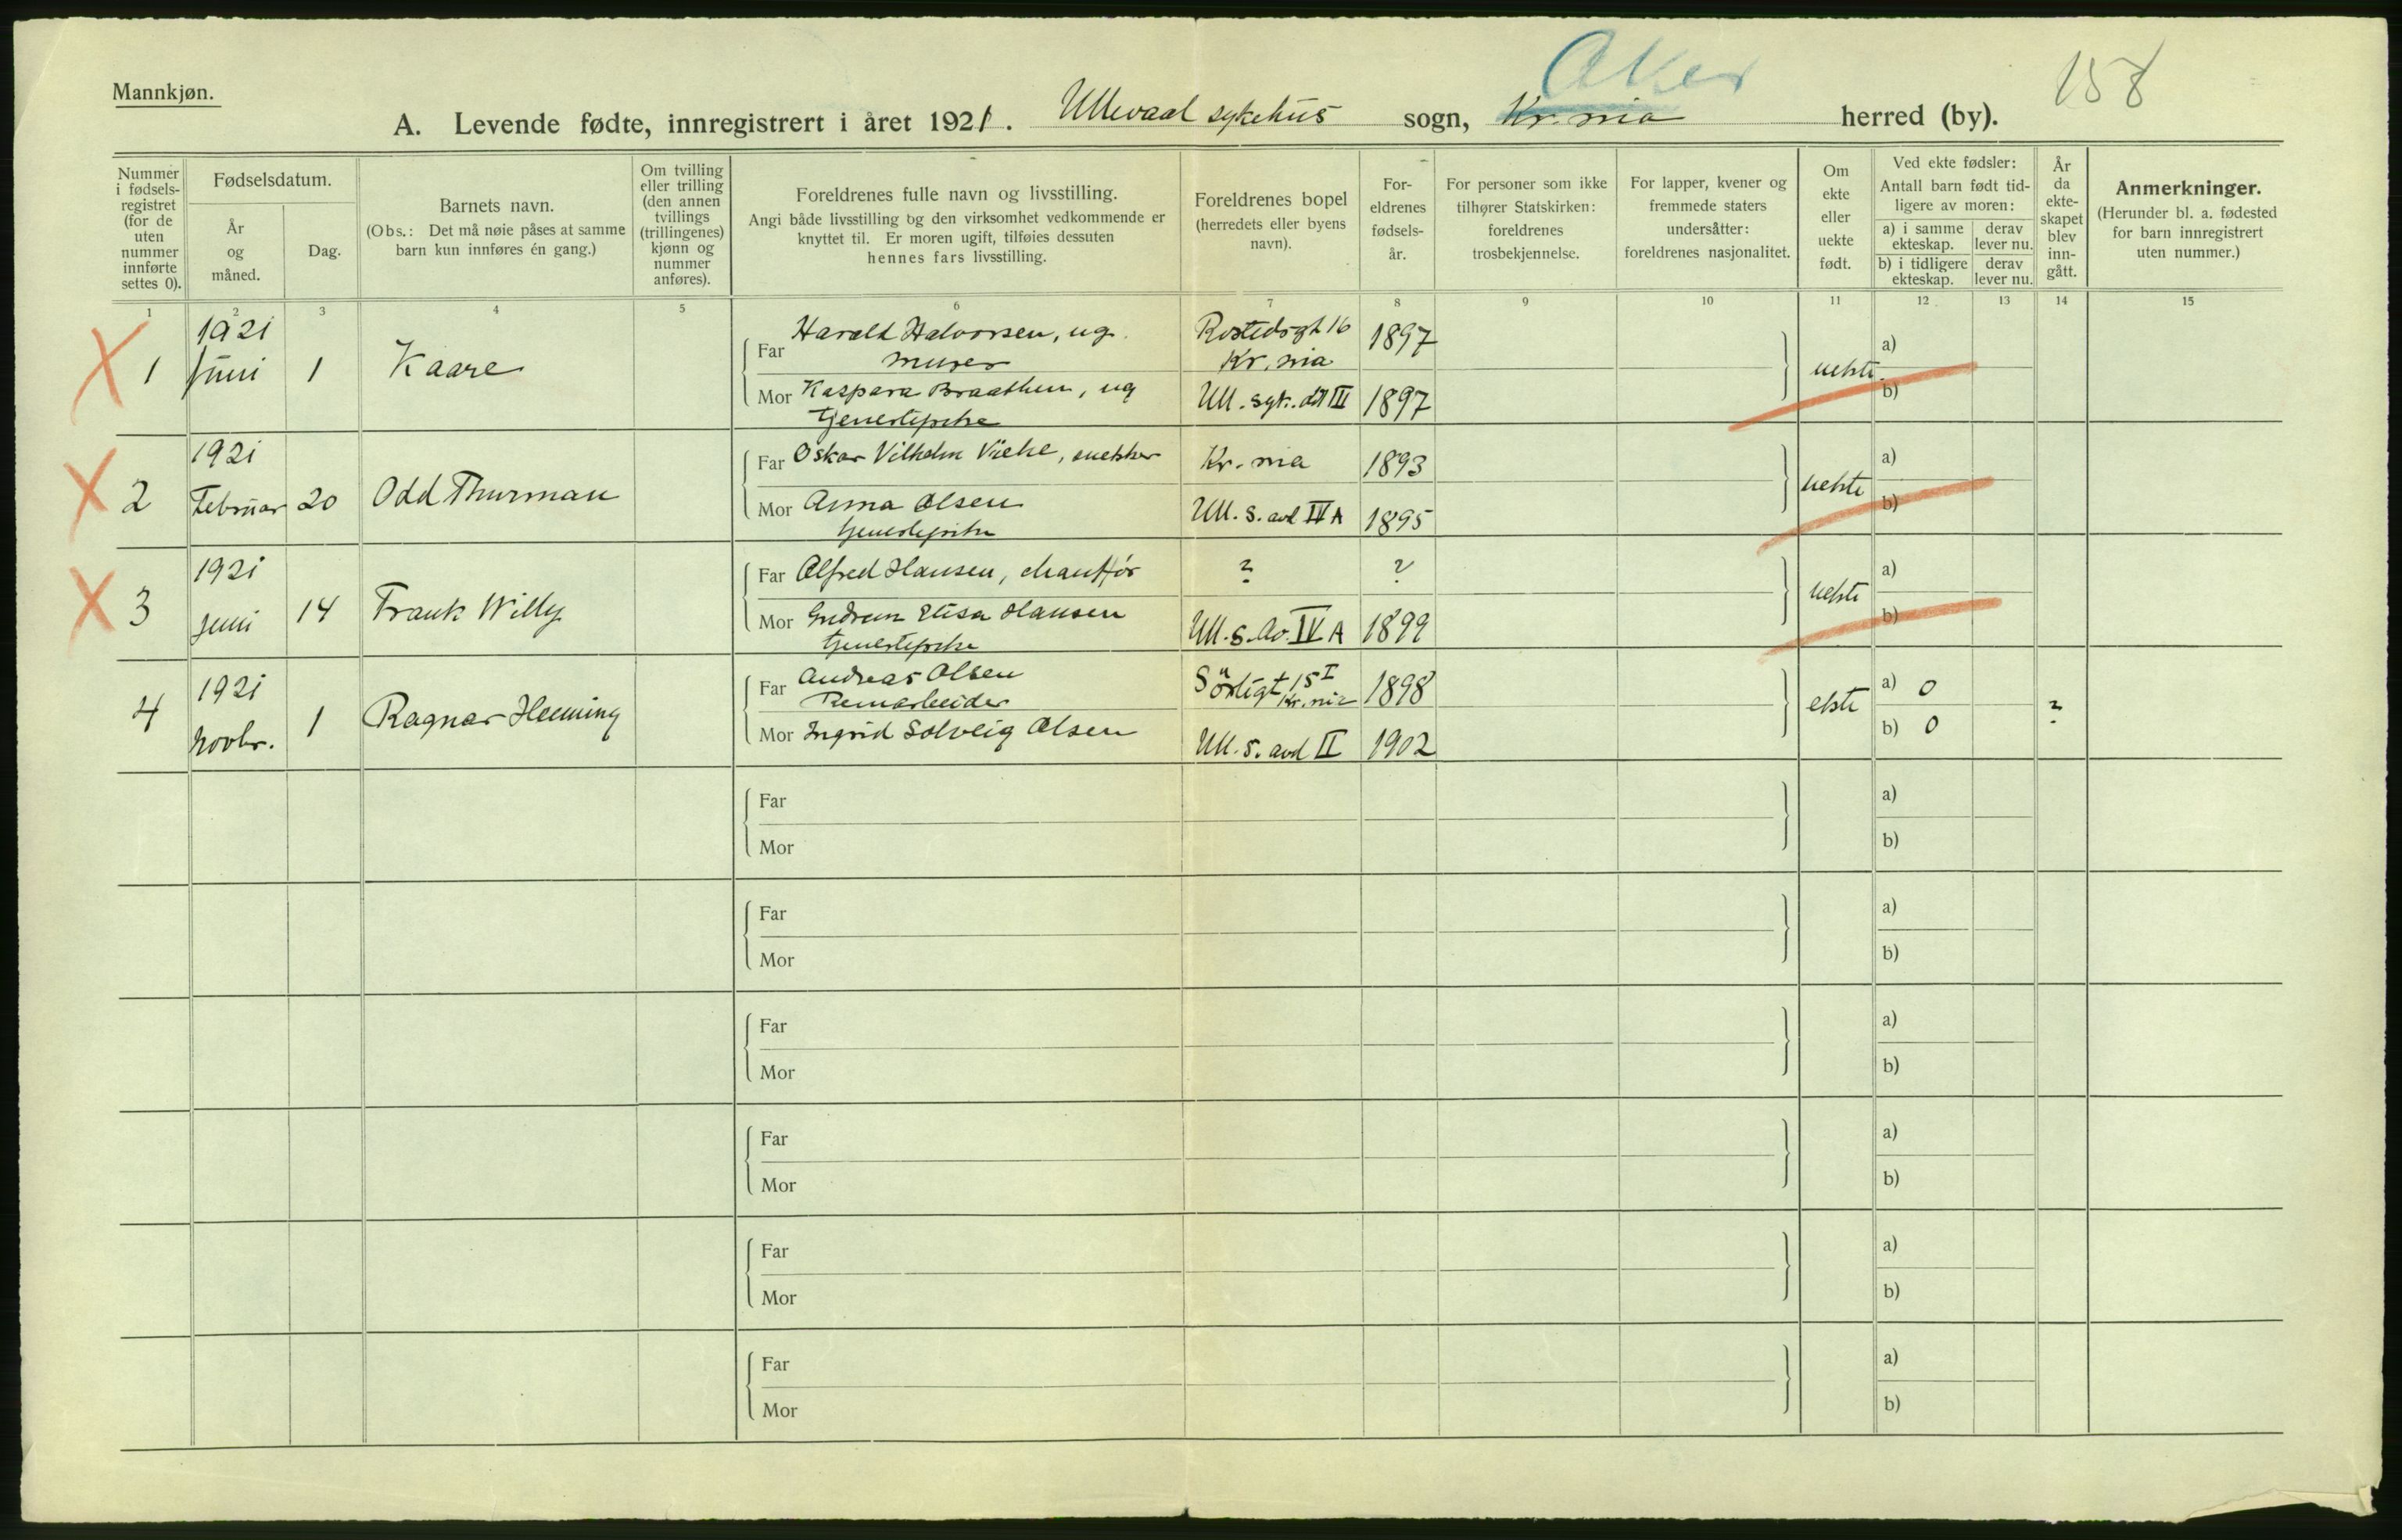 Mannkjøn.
Aker
158
A. Levende fødte, innregistrert i året 1921. Ullevaal sykehus sogn, Kr.nia herred (by).
Nummer i fødsels-registret (for de uten nummer innførte settes 0).
Fødselsdatum.
År og måned.
Dag.
Barnets navn.
(Obs.: Det må nøie påses at samme barn kun innføres én gang.)
Om tvilling eller trilling (den annen tvillings (trillingenes) kjønn og nummer anføres).
Foreldrenes fulle navn og livsstilling.
Angi både livsstilling og den virksomhet vedkommende er knyttet til. Er moren ugift, tilføies dessuten hennes fars livsstilling.
Foreldrenes bopel
(herredets eller byens navn).
For-eldrenes fødsels-år.
For personer som ikke tilhører Statskirken: foreldrenes trosbekjennelse.
For lapper, kvener og fremmede staters undersåtter: foreldrenes nasjonalitet.
Om ekte eller uekte født.
Ved ekte fødsler:
Antall barn født tid-ligere av moren:
a) i samme ekteskap.
derav lever nu.
b) i tidligere ekteskap.
derav lever nu.
År da ekte-skapet blev inn-gått.
Anmerkninger.
(Herunder bl. a. fødested for barn innregistrert uten nummer.)
1 2 3 4 5 6 7 8 9 10 11 12 13 14 15
1 1921 Juni 1 Kaare
Far Harald Halvorsen, ug. murer Kr.nia 1897
Mor Kaspara Braathen, ug Tjenestepike Ull. syk. III 1897
uekte
a)
b)
2 1921 Februar 20 Odd Thurman
Far Oskar Vilhelm snekker Kr.nia 1893
Mor Anna Olsen tjenestepike Ull. s. avd IV A 1895
uekte
a)
b)
3 1921 juni 14 Frank Willy
Far Alfred Hansen, chauffør ? ?
Mor Gudrun Elisa Hansen tjenestepike Ull. s. Av. IV A 1899
uekte
a)
b)
4 1921 Novbr. 1 Ragnar Henning
Far Andreas Olsen 15 I Kr.nia 1898
Mor Ingrid Solveig Olsen Ull. s. avd II 1902
ekte
a) 0
b) 0
?
Far a)
Mor b)
Far a)
Mor b)
Far a)
Mor b)
Far a)
Mor b)
Far a)
Mor b)
Far a)
Mor b)